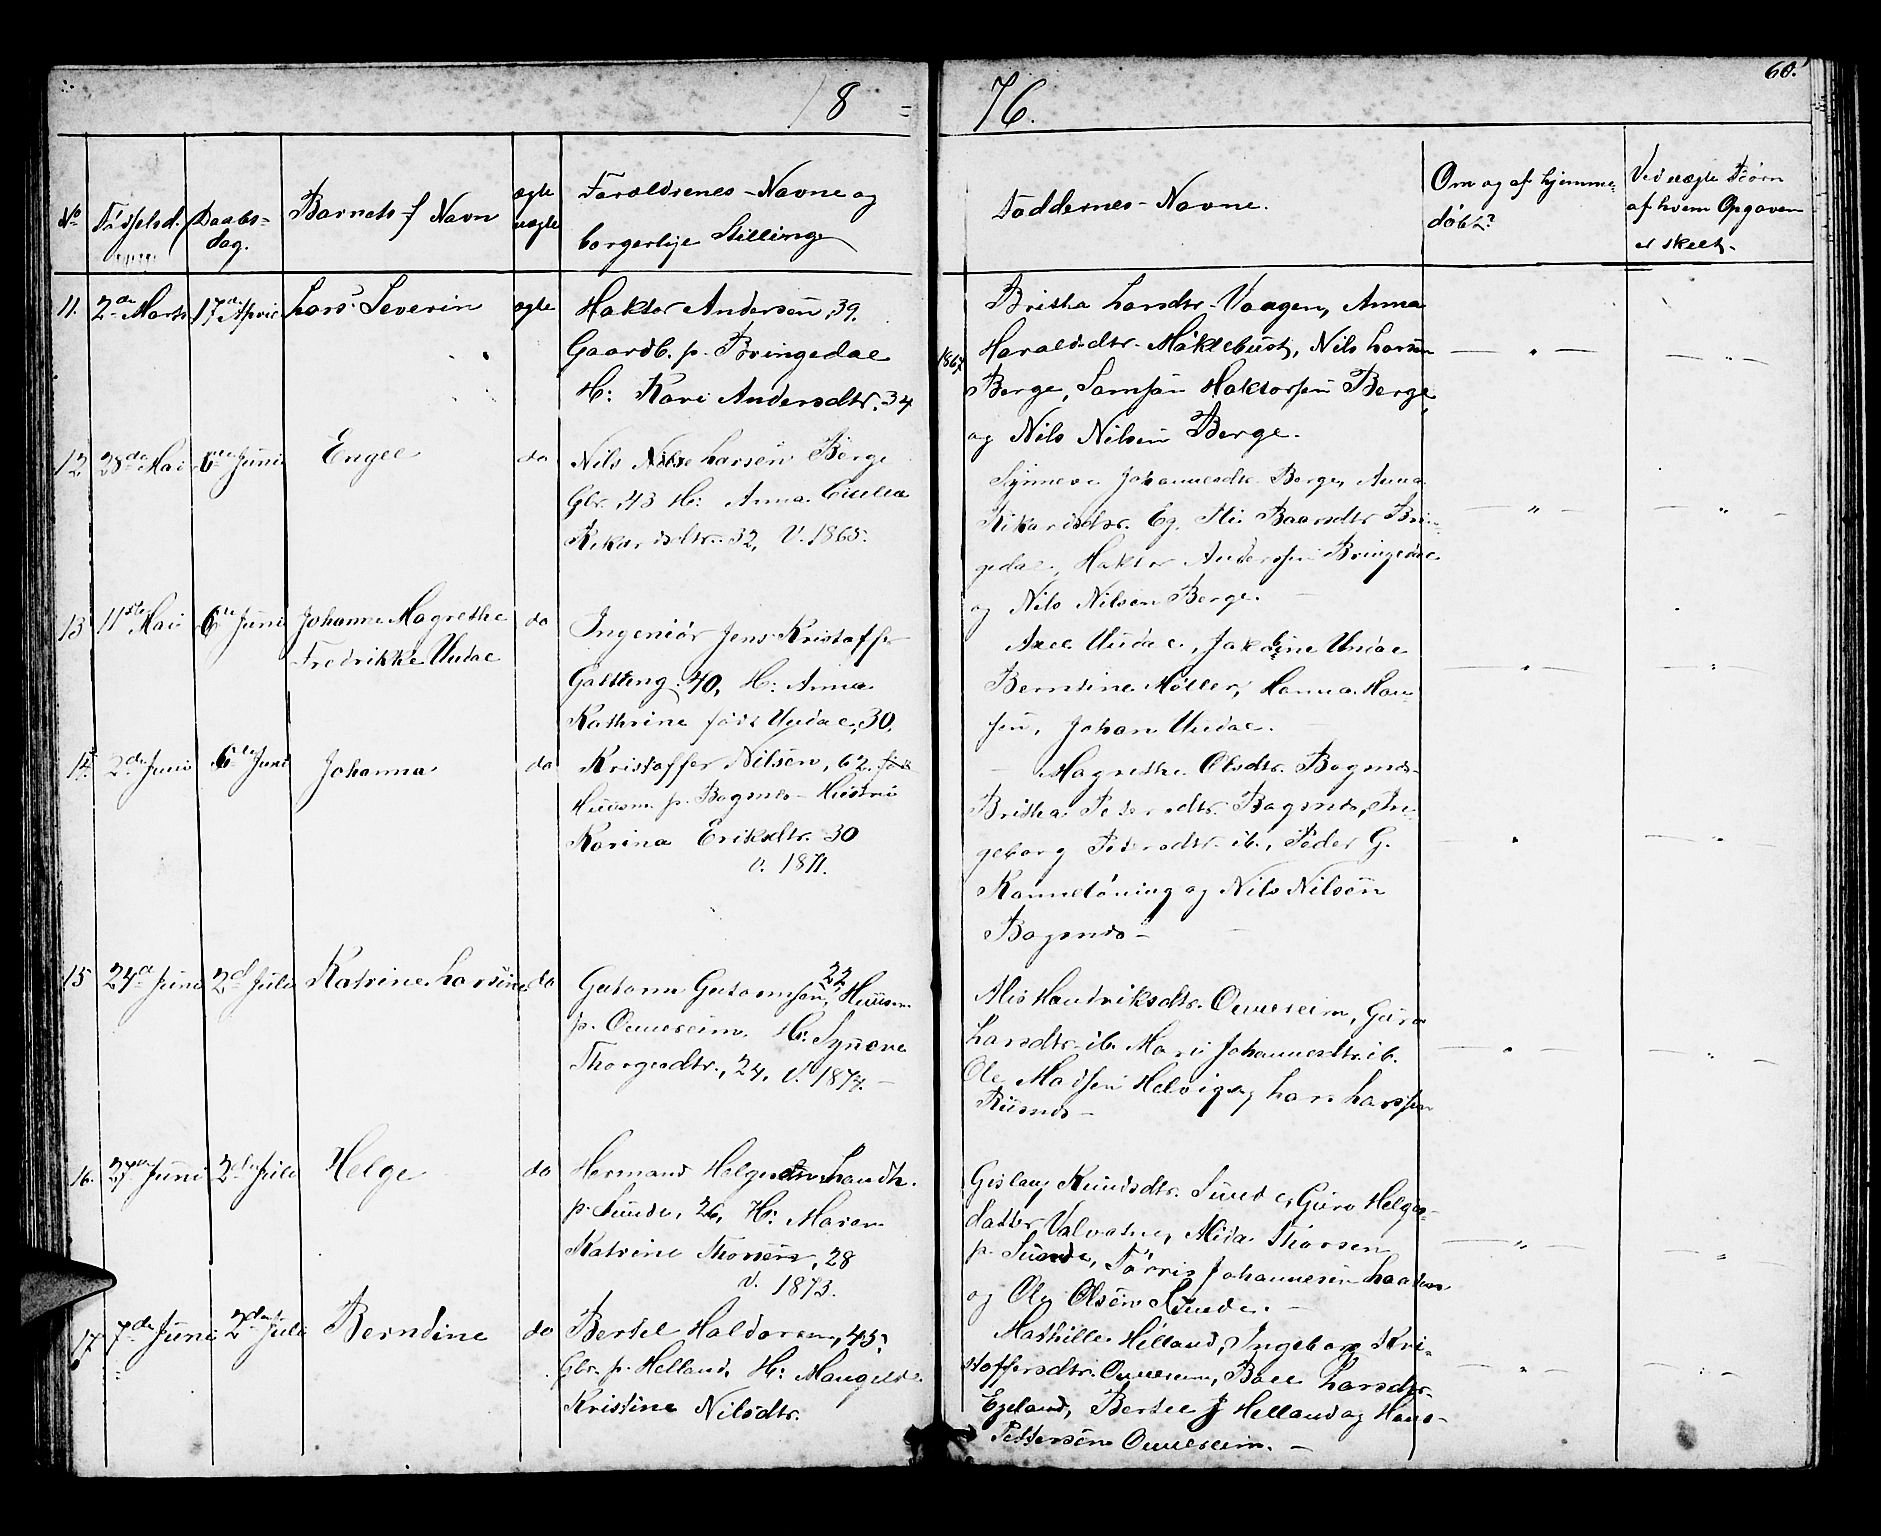 18 = 76.
60.
No
Födselsd.
Daabs-
dag.
Barnets f Navn
ægte
uægte
Forældrenes Navne og
borgerlige Stilling
Faddernes Navne.
Om og af hjemme-
döbt?
Ved uægte Börn
af hvem Opgaven
er skeet.
11. 2den Marts 17de April Lars Severin ægte
Haktor Andersen, 39.
Gaardb. p. Bringedal
H: Kari Andersdtr. 34
1867
Britha Larsdtr. Vaagen, Anna
Haraldsdtr. Möklebust, Nils Larsen
Berge, Samson Haktorsen Berge
og Nils Nilsen Berge.
12 28de Mai 6te Juni Engel do
Nils Larsen Berge
Gbr. 43 H: Anna Cicilia
Rikardsdtr. 32, V. 1865.
Synneve Johannesdtr. Berge, Anna
Rikardsdtr. Baardsdtr Brin-
gedal, Haktor Andersen Bringedal
og Nils Nilsen Berge.
13 11te Mai 6te Juni Johanne Magrethe do
Fredrikke Undal
Ingeniör Jens Kristoffer
Galtung 40, H: Anna
Kathrine född Undal, 30.
Axel Undal, Jakobine Undal
Berntine Möller, Hanna Han-
sen, Johan Undal.
14. 2den Juni 6te Juni Johanna do
Kristoffer Nilsen, 62.
Huusm. p. Bogsnes - Hustru
Karina Eriksdtr. 30
v. 1871.
Magrethe Olsdtr. Bogsnes
Britha Pedersdtr. Bogsnes, In-
geborg Pedersdtr. ib., Peder G.
Kannelöning og Nils Nilsen
Bogsnes -
15 24de Juni 2den Juli Katrine Larsine do
Gutorm Gutormsen, 22, Huusm
p. Omereim. H: Synneve
Thorgersdtr., 24. V. 1874. -
Alis Hendriksdtr. Omereim, Guro
Larsdtr. ib. Mari Johannesdtr. ib.
Ole Madsen Helvig og Lars Larsen
Ruusnes -
16. 27de Juni 2den Juli Helge do
Hermand Helgesen Landh.
p. Sunde, 26, H: Maren
Katrine Thorsen, 28
V. 1873.
Gislaug Knudsdtr. Sunde, Guro Helges-
datter Valvatne, Thorsen
p. Sunde, Törris Johannesen
og Ole Olsen Sunde. -
17. 7de Juni 2den Juli Berntine do
Bertel Haldorsen, 45,
Gbr. p. Helland, H: Maugelde
Kristine Nilsdtr.
Mathilde Helland, Ingeborg Kri-
stoffersdtr. Omereim, Larsdtr.
Egeland, Bertel J Helland og Hans
Pettersen Omereim. -